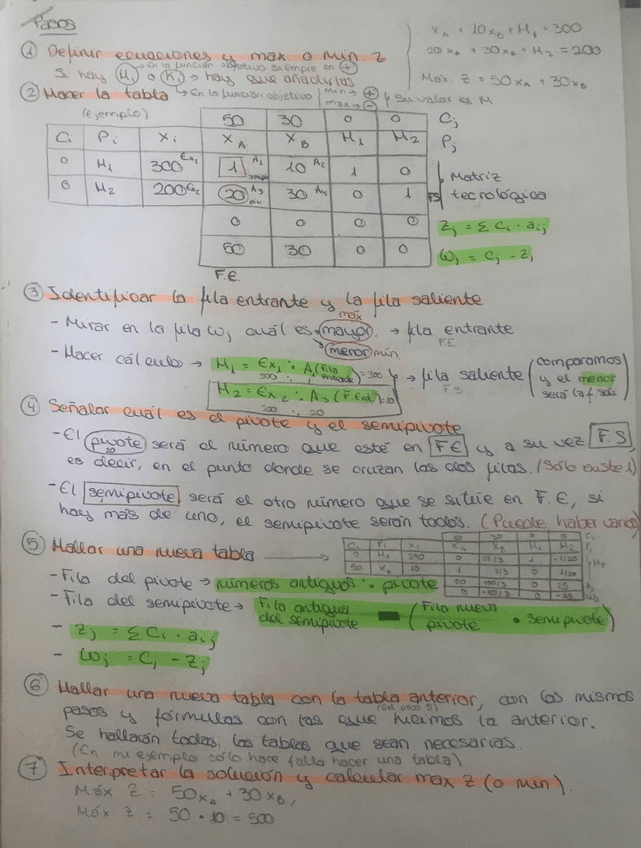 Pasos
x_A + 10x_B + H_1 = 300
20x_A + 30x_B + H_2 = 200
Máx. Z = 50x_A + 30x_B
① Definir ecuaciones y max o min. Z
en la función objetivo siempre en +
Si hay H_1 o K_1 → hay que añadirlas
② Hacer la tabla → En la función objetivo min → + max → - y su valor es M
(Ejemplo)
50 30 0 0 C_j
C_i P_i X_i X_A X_B H_1 H_2 P_j
0 H_1 300 Ex_1 1 A_1 semipiv 10 A_2 1 0 Matriz
0 H_2 200 Ex_2 20 A_3 piv 30 A_4 0 1 FS tecnológica
0 0 0 0 Z_j = Σ C_i · a_ij
50 30 0 0 W_j = C_j - Z_j
F.E.
③ Identificar la fila entrante y la fila saliente
- Mirar en la fila W_j cuál es mayor máx. → fila entrante F.E
menor min.
- Hacer cálculo → H_1 = Ex_1 : A_1 (Fila entrante) = 300 → fila saliente F.S (comparamos y el menor será la f. sal
300 : 1
H_2 = Ex_2 : A_3 (F.Ent) = 10
200 : 20
④ Señalar cuál es el pivote y el semipivote
- El pivote será el número que esté en F.E y a su vez F.S,
20
es decir, en el punto donde se cruzan las dos filas. (Sólo existe 1)
- El semipivote será el otro número que se sitúe en F.E, si
hay más de uno, el semipivote serán todos. (Puede haber varios)
⑤ Hallar una nueva tabla →
50 30 0 0 C_j
C_i P_i X_i X_A X_B H_1 H_2 P_j
0 H_1 290 0 1 -1/20
50 X_A 10 1 0 1/20
50 0 Z_j
0 0 W_j
- Fila del pivote → números antiguos : pivote
- Fila del semipivote → Fila antigua del semipivote - (Fila nueva pivote · semipivote)
- Z_j = Σ C_i · a_ij
- W_j = C_j - Z_j
⑥ Hallar una nueva tabla con la tabla anterior, con los mismos
(del paso 5)
pasos y fórmulas con las que hicimos la anterior.
Se hallarán todas las tablas que sean necesarias.
(En mi ejemplo sólo hace falta hacer una tabla)
⑦ Interpretar la solución y calcular max Z (o min).
Máx Z = 50x_A + 30x_B,
Máx Z = 50 · 10 = 500